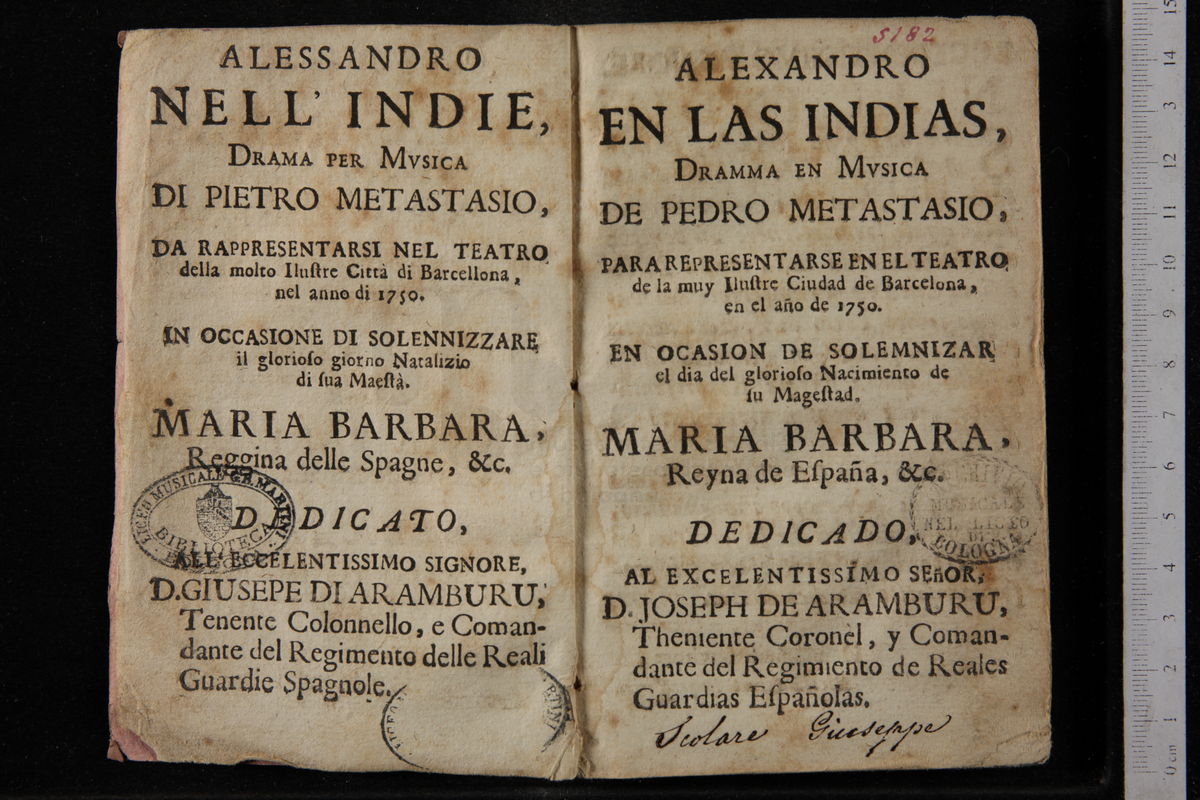 ALESSANDRO
NELL' INDIE,
DRAMA PER MVSICA
DI PIETRO METASTASIO,
DA RAPPRESENTARSI NEL TEATRO
della molto Iluſtre Città di Barcellona,
nel anno di 1750.
IN OCCASIONE DI SOLENNIZZARE
il glorioſo giorno Natalizio
di ſua Maeſtà.
MARIA BARBARA,
Reggina delle Spagne, &c.
DEDICATO,
ALL' ECCELENTISSIMO SIGNORE,
D. GIUSEPE DI ARAMBURU,
Tenente Colonnello, e Coman-
dante del Regimento delle Reali
Guardie Spagnole.
LICEO MUSICALE G.B. MARTINI
BIBLIOTECA
LICEO
RTINI
5182
ALEXANDRO
EN LAS INDIAS,
DRAMMA EN MVSICA
DE PEDRO METASTASIO,
PARA REPRESENTARSE EN EL TEATRO
de la muy Iluſtre Ciudad de Barcelona,
en el año de 1750.
EN OCASION DE SOLEMNIZAR
el dia del glorioſo Nacimiento de
ſu Mageſtad.
MARIA BARBARA,
Reyna de Eſpaña, &c.
DEDICADO,
AL EXCELENTISSIMO SEñOR,
D. JOSEPH DE ARAMBURU,
Theniente Coronèl, y Coman-
dante del Regimiento de Reales
Guardias Eſpañolas.
MUSICALE
NEL LICEO
DI
BOLOGNA
Scolare Giuseppe
15
14
13
12
11
10
9
8
7
6
5
4
3
2
1
0 cm